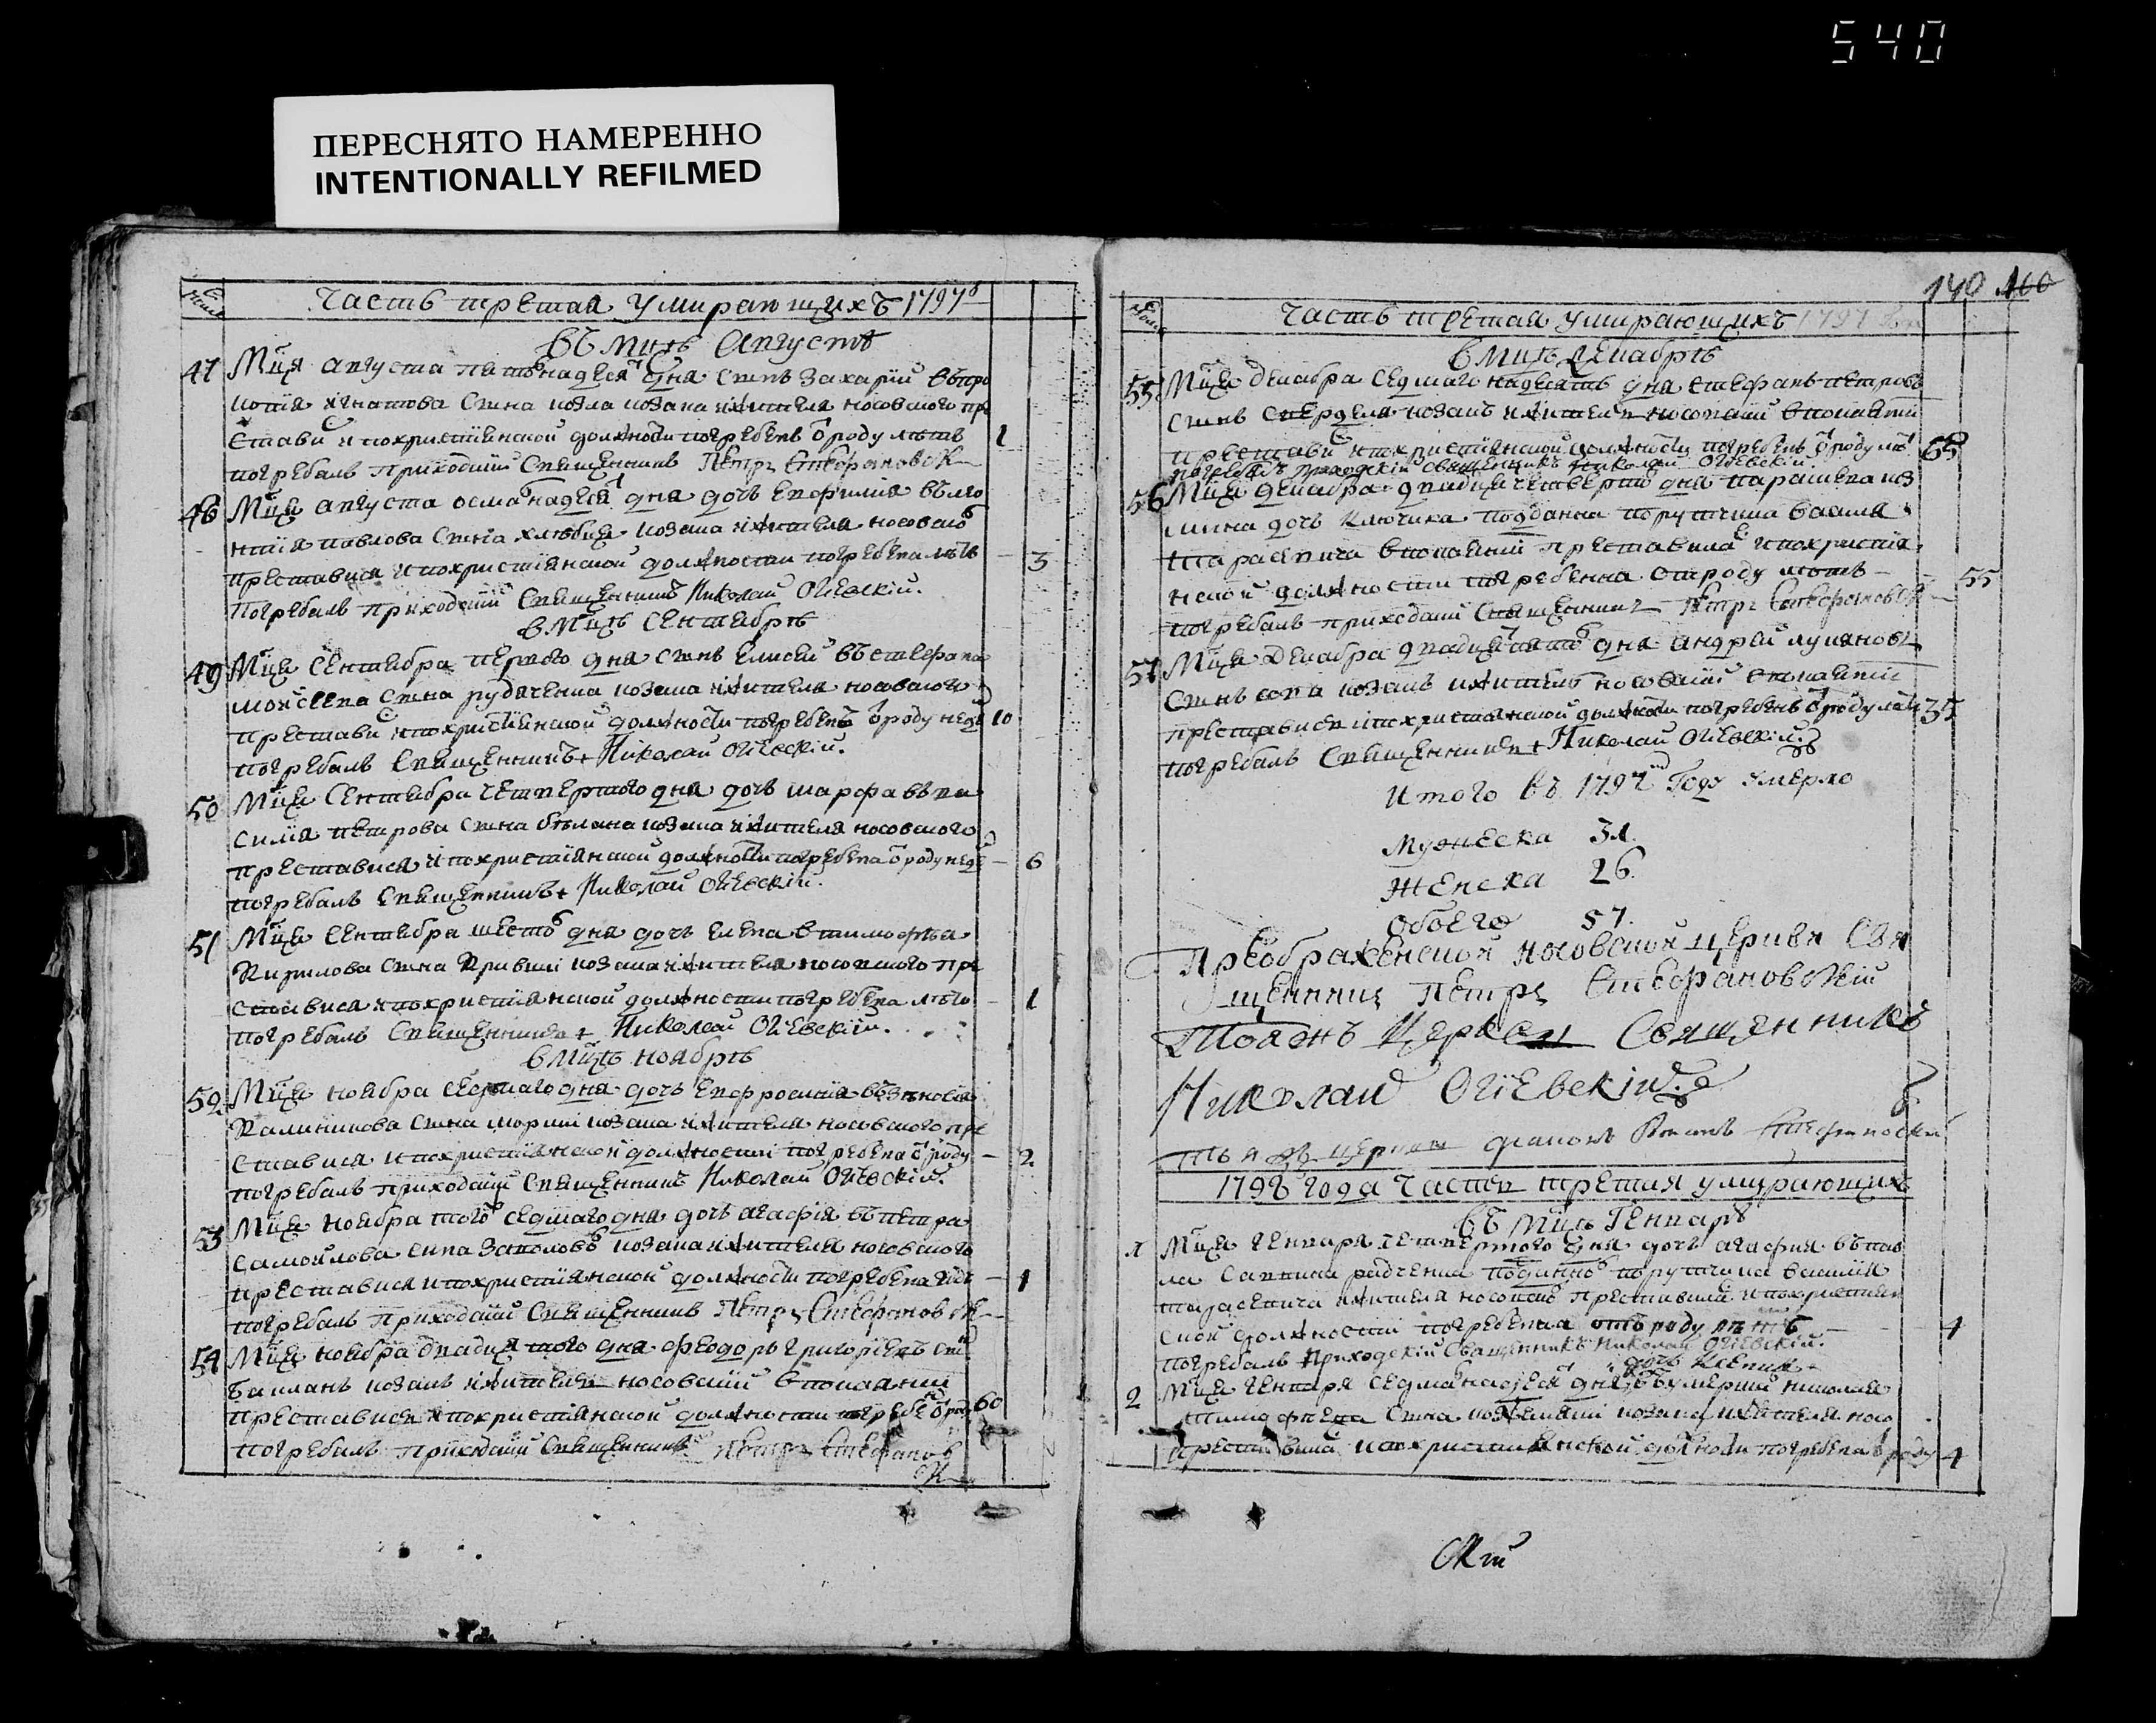 540
ПЕРЕСНЯТО НАМЕРЕННО
INTENTIONALLY REFILMED
Часть третая умирающихъ 1797
въ мцѣ Августѣ
47 Мца августа пятнадесят дня снъ Захарїи въ про
копїя игнатова сина козла козака жителя носовского пре
стави и похристїенской должности погребенъ ѿ роду лѣтъ 1
погребалъ приходский священникъ Петръ Стефановск
48 Мца августа османадесят дня дочь Евфимия въ лео
нтїя павлова сина хлѣбця козака жителя носовского
преставися и похристїянской должности погребена лѣтъ 3
Погребалъ приходский священникъ Николай Огїевскїй.
в мцѣ Сентябрѣ
49 Мца Сентября первого дня синъ Елисей въ стефана
мойсеева сина рудаченка козака жителя носовского
престави и похристїянской должности погребенъ ѿ роду недѣ 10
погребалъ священникъ Николай Огїевскїй.
50 Мца Сентября четвертого дня дочь марфа въ ва
силїя петрова сина козака жителя носовского
преставися и похристїянской должности погребена ѿ роду недѣ 6
погребалъ священникъ Николай Огїевскїй.
51 Мца Сентября шестого дня дочь елена в тимофѣа
Кирилова сина козака жителя носовского пре
ставися и похристїянской должности погребена лѣто 1
погребалъ священникъ Николай Огїевскїй.
в мцѣ ноябрѣ
52 Мца ноября седмаго дня дочь Евфросинїя въ
Калиникова сина козака жителя носовского пре
ставися и похристїянской должности погребена ѿ роду 2
погребалъ приходский священникъ Николай Огїевскїй.
53 Мца ноября того седмаго дня дочь агафїя въ петра
самойлова сина козака жителя носовского
преставися и похристїянской должности погребена 1
погребалъ приходский священникъ Петръ Стефановск
54 Мца ноября двадця того дня феодоръ григорїевъ син
козакъ жителя носовский в покаянии
преставися и похристїянской должности погребе ѿ роду 60
погребалъ приходский священникъ Петръ Стефанов
ск
140 160
Часть третая умирающихъ 1797
в мцѣ декабрѣ
55 Мца декабра седмаго надесять дня стефанъ петровъ
синъ козакъ житель носовский в покаятїи
престави и похристїянской должности погребенъ ѿ роду лѣ 65
погребалъ приходскїй священникъ Николай Огїевскїй.
56 Мца декабра двадцят четверто дня параскева коз
мина дочь подданка порутчика василя
тарасевича в покаянїи преставила и похристїя
нской должности погребенна от роду лѣтъ 55
погребалъ приходский священникъ Петръ Стефановск
57 Мца декабра двадцят пято дня андрей лукяновъ
синъ козакъ житель носовский в покаятїи
преставися и похристїянской должности погребенъ ѿ роду лѣ 35
погребалъ священникъ Николай Огїевскїй.
Итого въ 1797 Году умерло
Мужеска 31.
Женска 26.
Обоего 57.
Преображенской носовской церкви Свя
щенникъ Петръ Стефановскїй
Тояжъ Церкви Священникъ
Николай Огїевскїй
Тоя жъ церкви
1798 года Часть третая умирающихъ
въ мцѣ Генварѣ
1 Мца генваря четвертого дня дочь агафия въ пав
ла радченка подданно порутчика василїя
тарасевича жителя носовско преставила и похристиен
ской должности погребенна отъ роду 4
погребалъ Приходскїй священникъ Николай Огїевскїй.
дочь
2 Мца генваря седманадеся дня въ умерши николая
тимофеева сина козака жителя носо
престави и похристиянской должности погребена ѿ роду 4
ский